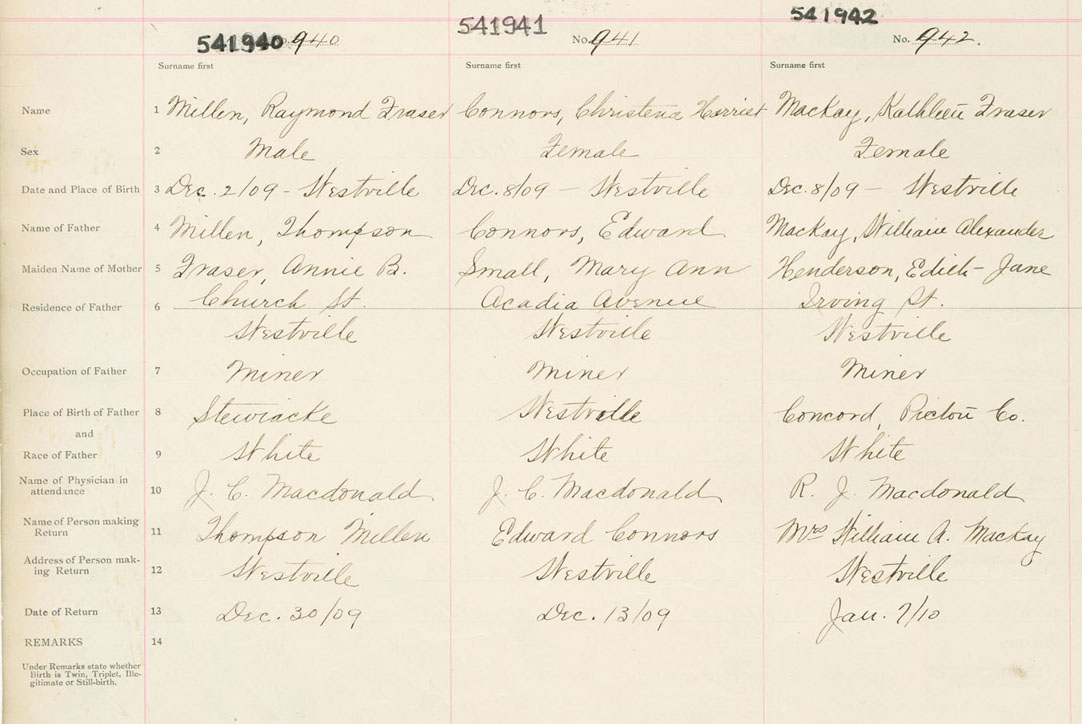 541940 940 541941 No. 941 541942 No. 942.
Surname first Surname first Surname first
Name 1 Millen, Raymond Fraser Connors, Christena Harriet Mackay, Kathleen Fraser
Sex 2 Male Female Female
Date and Place of Birth 3 Dec. 2/09 - Westville Dec. 8/09 - Westville Dec. 8/09 - Westville
Name of Father 4 Millen, Thompson Connors, Edward Mackay, William Alexander
Maiden Name of Mother 5 Fraser, Annie B. Small, Mary Ann Henderson, Edith Jane
Residence of Father 6 Church St. Acadia Avenue Irving St.
Westville Westville Westville
Occupation of Father 7 Miner Miner Miner
Place of Birth of Father 8 Stewiacke Westville Concord, Pictou Co.
and
Race of Father 9 White White White
Name of Physician in
attendance 10 J. C. Macdonald J. C. Macdonald R. J. Macdonald
Name of Person making
Return 11 Thompson Millen Edward Connors Mrs William A. Mackay
Address of Person mak-
ing Return 12 Westville Westville Westville
Date of Return 13 Dec. 30/09 Dec. 13/09 Jan. 7/10
REMARKS 14
Under Remarks state whether
Birth is Twin, Triplet, Ille-
gitimate or Still-birth.